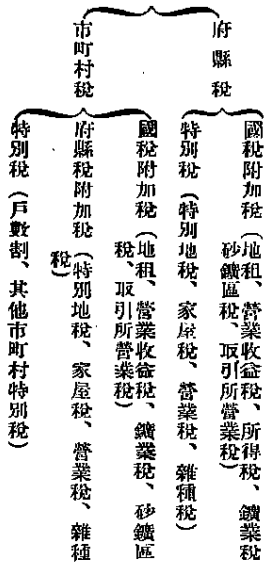 府縣稅
國稅附加稅（地租、營業收益稅、所得稅、鑛業稅
砂鑛區稅、取引所營業稅）
特別稅（特別地稅、家屋稅、營業稅、雜種稅）
市町村稅
國稅附加稅（地租、營業收益稅、鑛業稅、砂鑛區
稅、取引所營業稅）
府縣稅附加稅（特別地稅、家屋稅、營業稅、雜種
稅）
特別稅（戶數割、其他市町村特別稅）